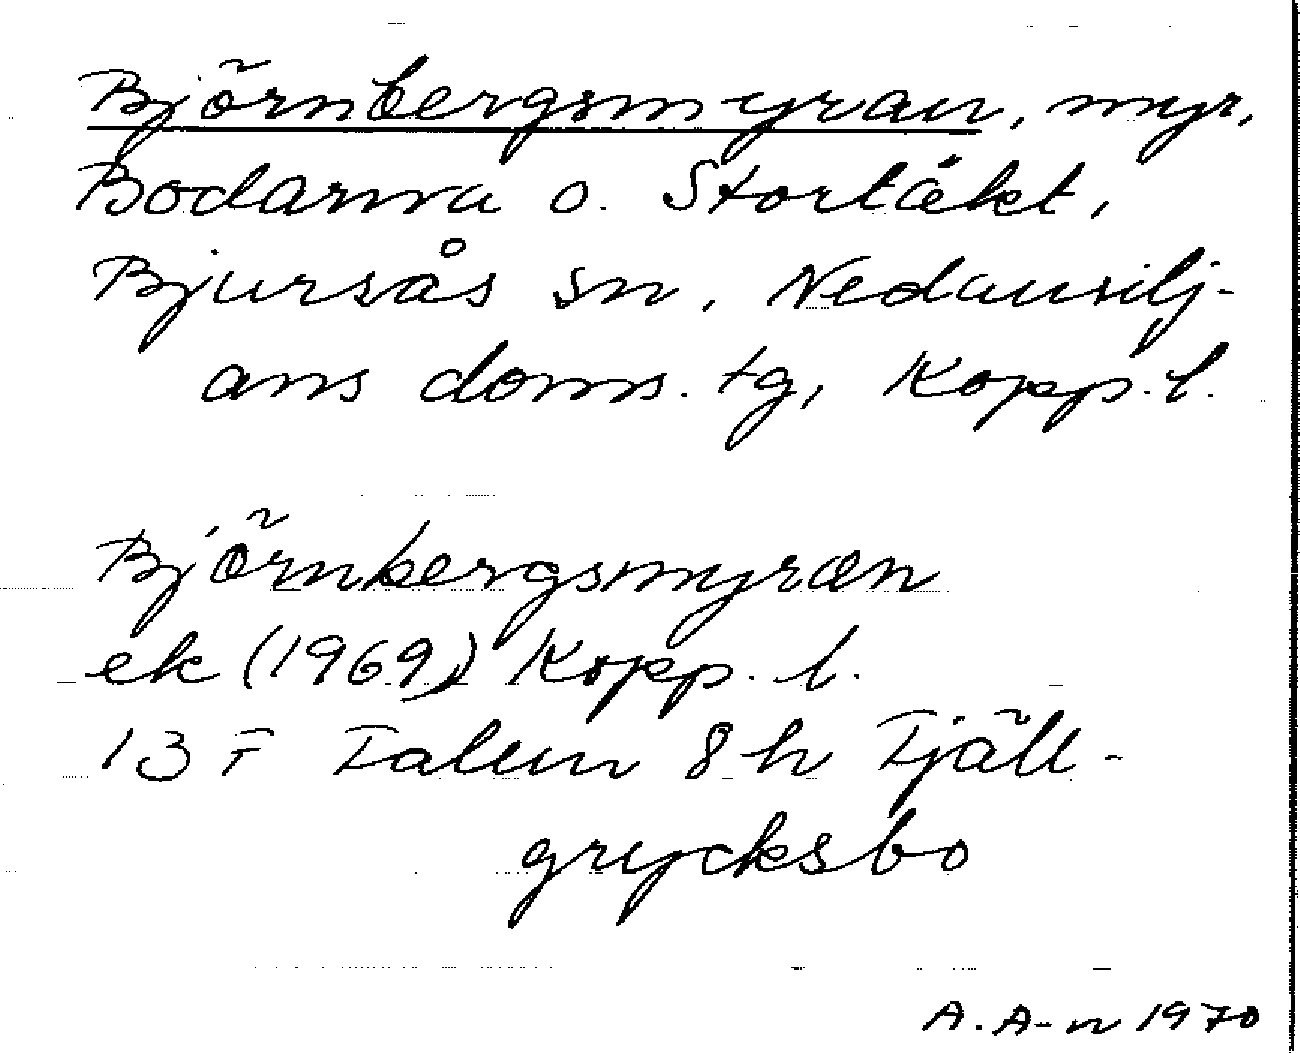 Björnbergsmyran, myr,
Bodarna o. Stortäkt,
Bjursås sn, Nedansilj-
ans doms. tg, Kopp. l.
Björnbergsmyran
ek (1969) Kopp. l.
13 F Falun 8 h Fjäll-
grycksbo
A. A-n 1970